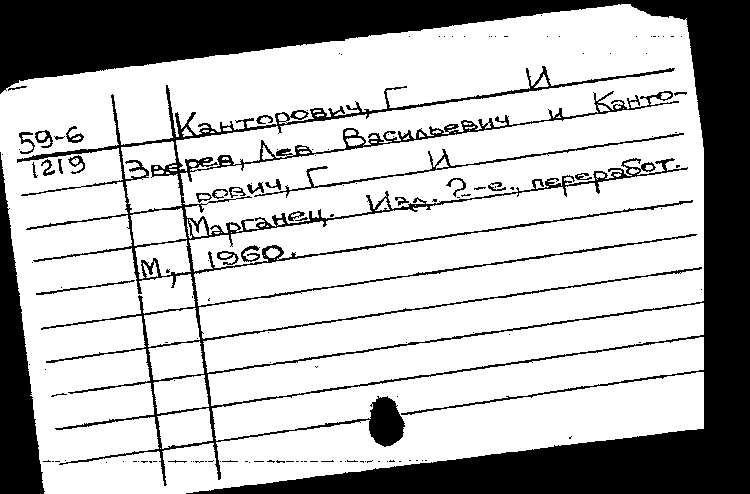 59-6
1219
Канторович, Г И
Зверев, Лев Васильевич и Канто-
рович, Г И
Марганец. Изд. 2-е., переработ.
М., 1960.